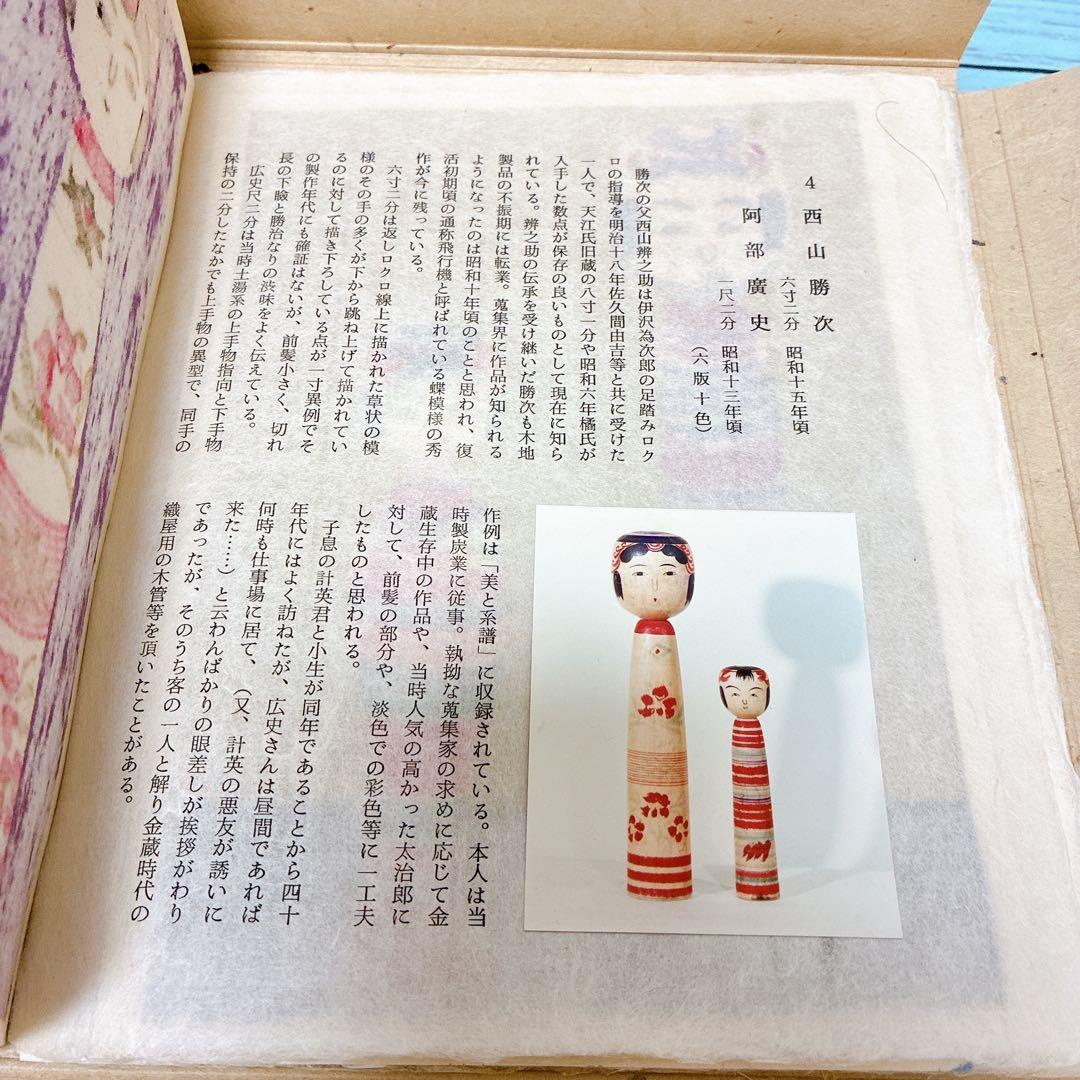 4 西山勝次 六寸二分 昭和十五年頃
阿部廣史 一尺二分 昭和十三年頃
(六版十色)
勝次の父西山辨之助は伊沢為次郎の足踏みロク
ロの指導を明治十八年佐久間由吉等と共に受けた
一人で、天江氏旧蔵の八寸一分や昭和六年橘氏が
入手した数点が保存の良いものとして現在に知ら
れている。辨之助の伝承を受け継いだ勝次も木地
製品の不振期には転業。蒐集界に作品が知られる
ようになったのは昭和十年頃のことと思われ、復
活初期頃の通称飛行機と呼ばれている蝶模様の秀
作が今に残っている。
六寸二分は返しロクロ線上に描かれた草状の模
様のその手の多くが下から跳ね上げて描かれてい
るのに対して描き下ろしている点が一寸異例でそ
の製作年代にも確証はないが、前髪小さく、切れ
長の下瞼と勝治なりの渋味をよく伝えている。
広史尺二分は当時土湯系の上手物指向と下手物
保持の二分したなかでも上手物の異型で、同手の
作例は「美と系譜」に収録されている。本人は当
時製炭業に従事。執拗な蒐集家の求めに応じて金
蔵生存中の作品や、当時人気の高かった太治郎に
対して、前髪の部分や、淡色での彩色等に一工夫
したものと思われる。
子息の計英君と小生が同年であることから四十
年代にはよく訪ねたが、広史さんは昼間であれば
何時も仕事場に居て、(又、計英の悪友が誘いに
来た……)と云わんばかりの眼差しが挨拶がわり
であったが、そのうち客の一人と解り金蔵時代の
織屋用の木管等を頂いたことがある。